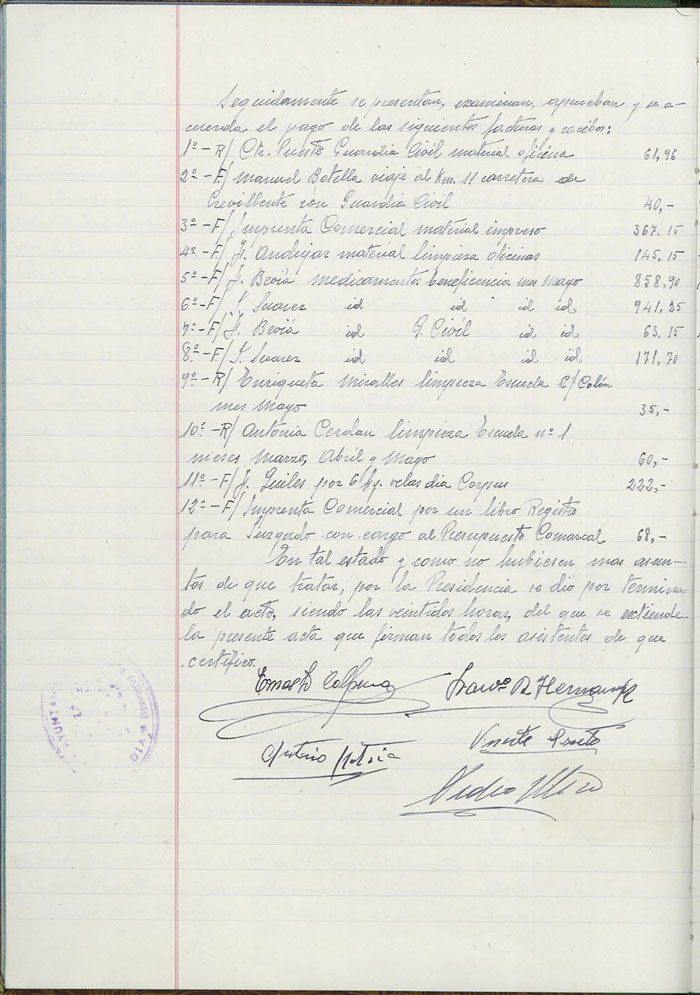 Seguidamente se presentan, examinan, aprueban y se a-
cuerda el pago de las siguientes facturas y recibos:
1º-R/ Cte. Puesto Guardia Civil material oficina 61,96
2º-F/ Manuel Botella viaje al Km. 11 carretera de
Crevillente con Guardia Civil 40,-
3º-F/ Imprenta Comercial material impreso 367.15
4º-F/ J. Andujar material limpieza oficinas 145,15
5º-F/ J. Beviá medicamentos beneficencia mes Mayo 858,90
6º-F/ Suarez id id id id 941,25
7º-F/ J. Beviá id G. Civil id id 63.15
8º-F/ Suarez id id id id 171,70
9º-R/ Enriqueta Miralles limpieza Escuela C/ Colón
mes Mayo 35,-
10º-R/ Antonia Cerdan limpieza Escuela nº 1
meses Marzo, Abril y Mayo 60,-
11º-F/ J. por 6 kg. velas dia Corpus 222,-
12º-F/ Imprenta Comercial por un libro Registro
para Juzgado con cargo al Presupuesto Comarcal 68,-
En tal estado y como no hubiesen mas asun-
tos de que tratar, por la Presidencia se dió por termina-
do el acto, siendo las veintidos horas, del que se extiende
la presente acta que firman todos los asistentes de que
certifico.